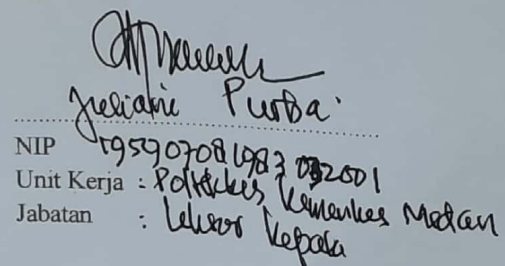 Juliani Purba
NIP 195907081983032001
Unit Kerja : Poltekkes Kemenkes Medan
Jabatan : Lektor Kepala